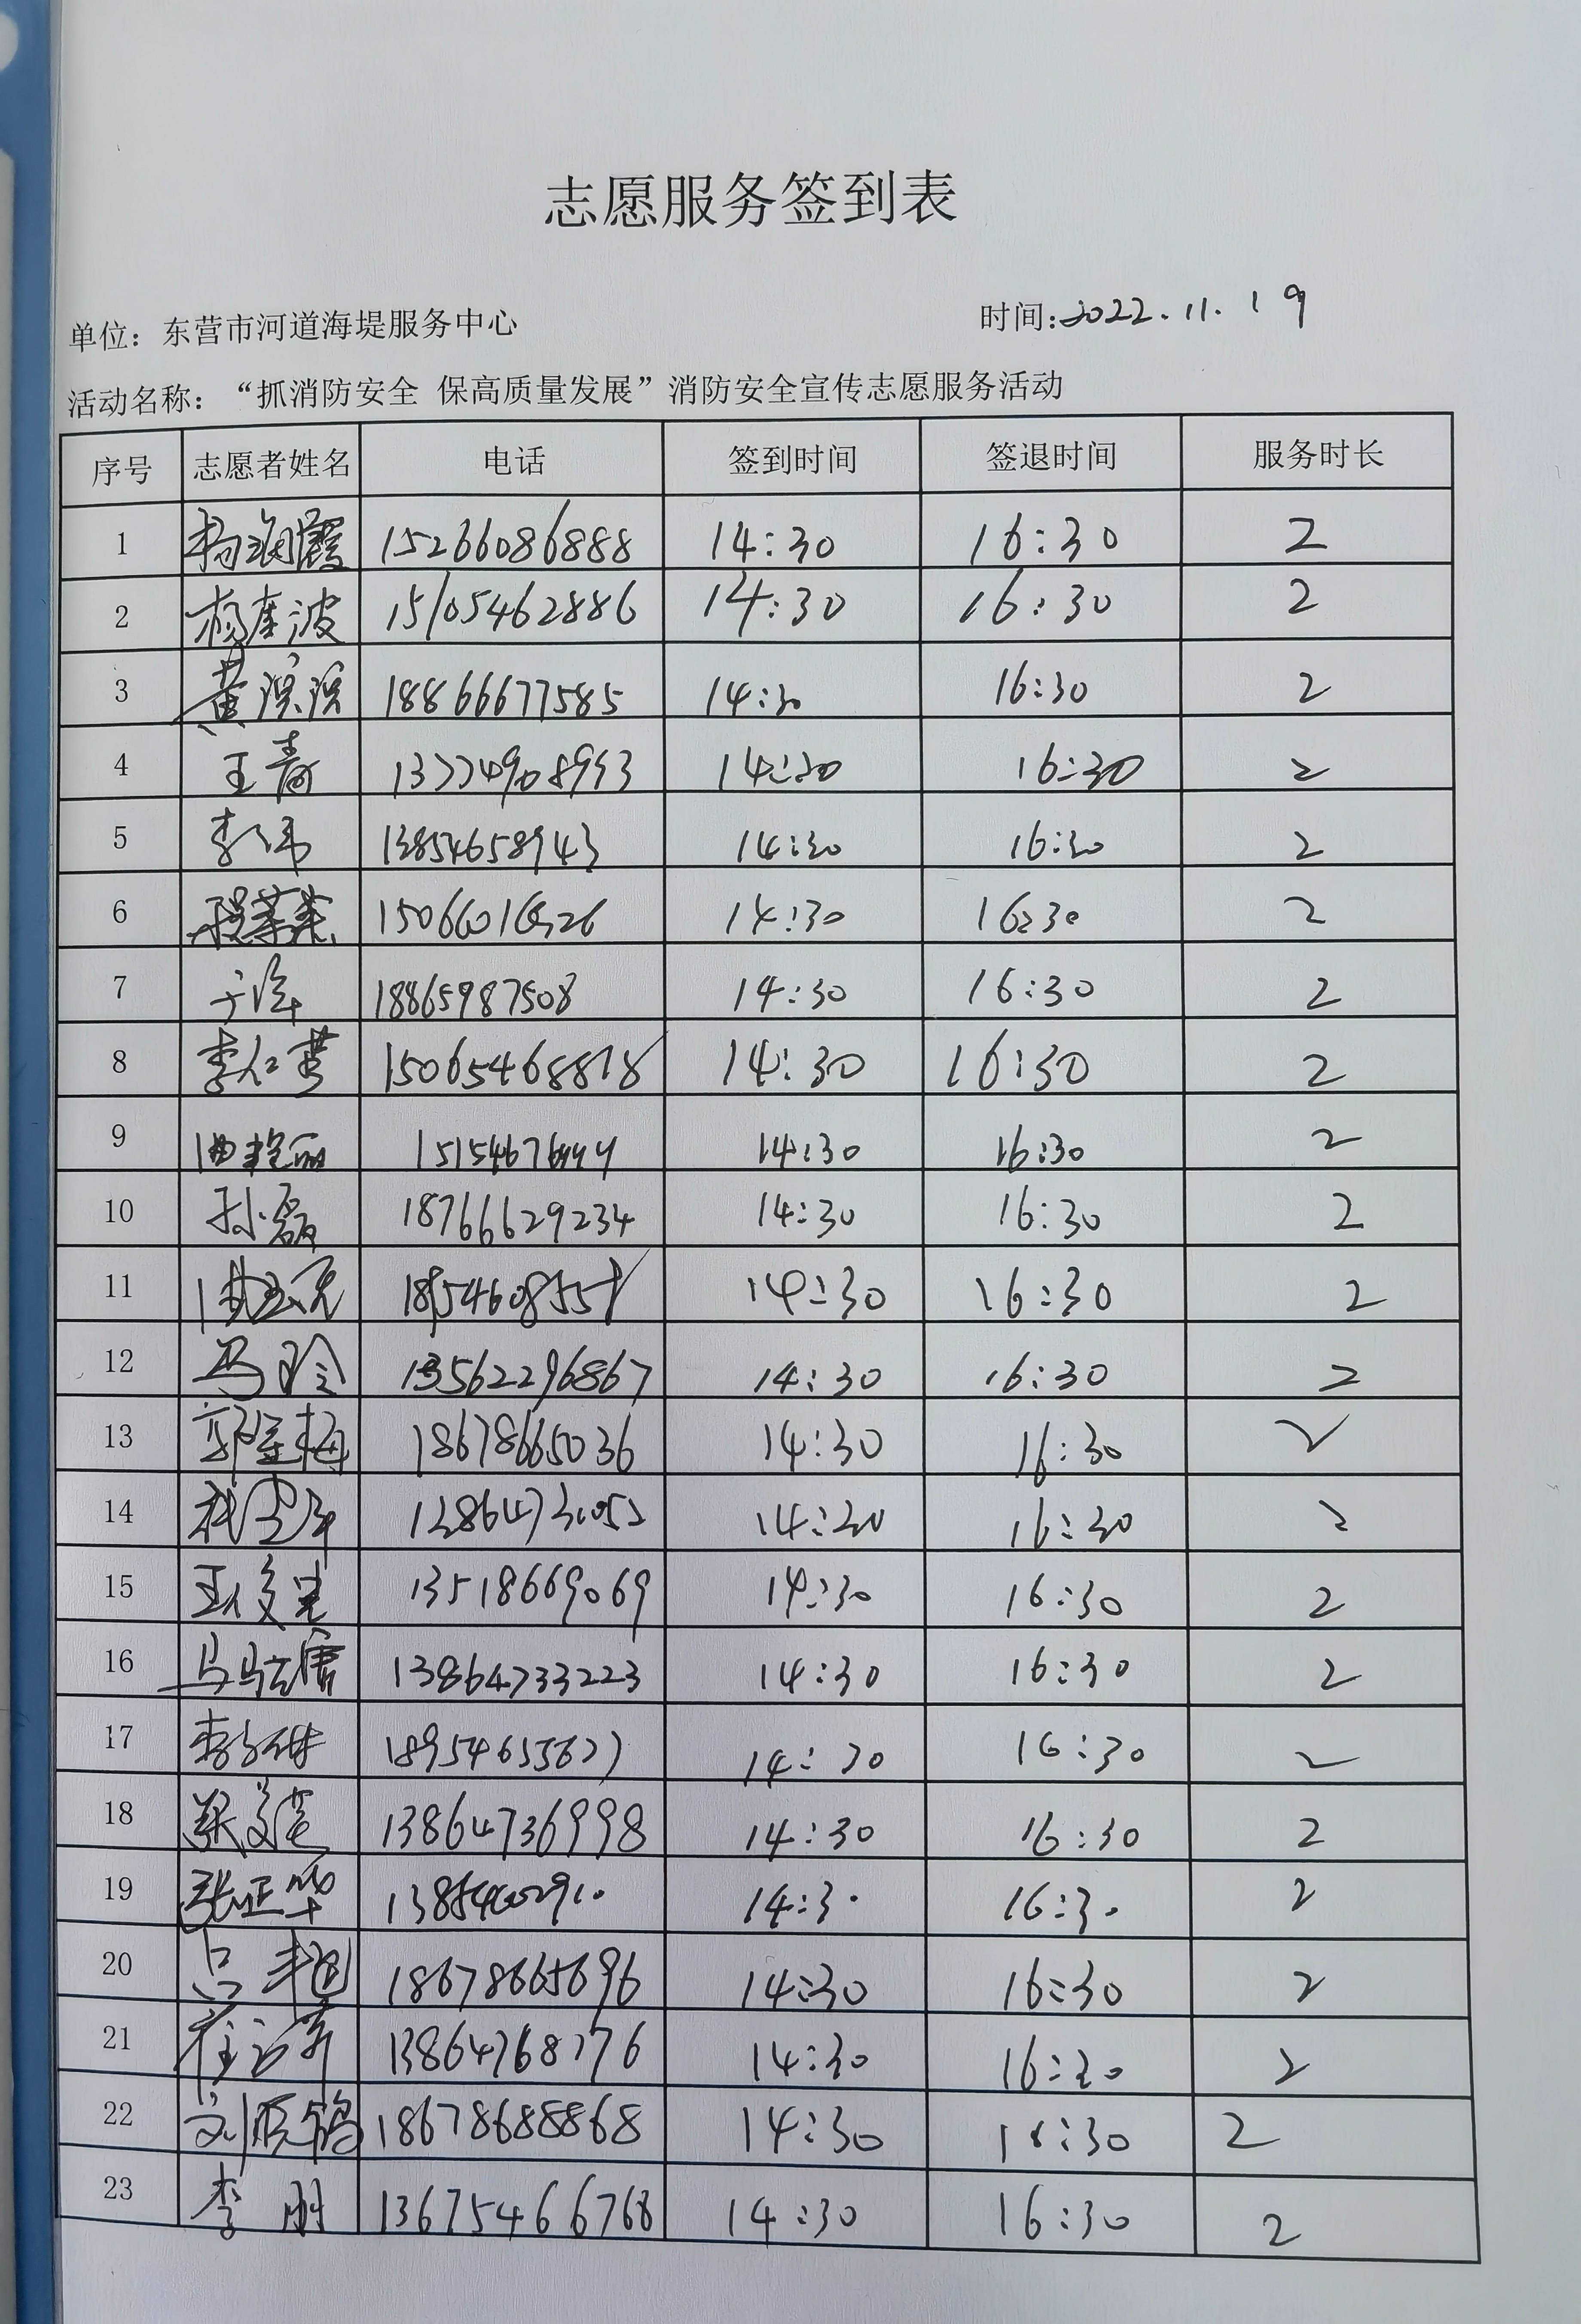 志愿服务签到表
单位：东营市河道海堤服务中心 时间:2022.11.19
活动名称：“抓消防安全 保高质量发展”消防安全宣传志愿服务活动
序号 志愿者姓名 电话 签到时间 签退时间 服务时长
1 杨润霞 15266086888 14:30 16:30 2
2 杨奎波 15105462886 14:30 16:30 2
3 黄滨滨 18866677585 14:30 16:30 2
4 王青 14:30 16:30 2
5 李伟 13854658943 14:30 16:30 2
6 14:30 16:30 2
7 于海 18865987508 14:30 16:30 2
8 李仁营 15065468818 14:30 16:30 2
9 曲艳丽 14:30 16:30 2
10 孙磊 18766629234 14:30 16:30 2
11 14:30 16:30 2
12 冯玲 13562296867 14:30 16:30 2
13 18678665036 14:30 16:30 2
14 14:30 16:30 2
15 13518669069 14:30 16:30 2
16 13864733223 14:30 16:30 2
17 14:30 16:30 2
18 13864736998 14:30 16:30 2
19 张正华 14:30 16:30 2
20 吕艳 18678665696 14:30 16:30 2
21 14:30 16:30 2
22 刘晓鸽 18678688868 14:30 16:30 2
23 李朋 13675466768 14:30 16:30 2